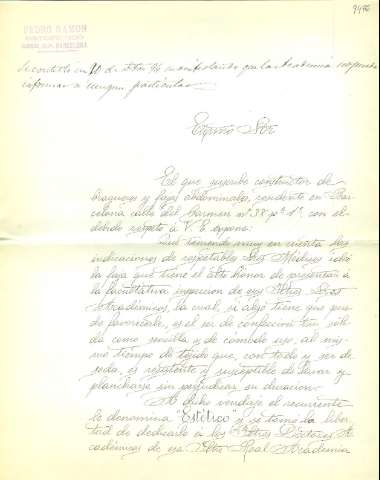 PEDRO RAMON
Se contestó en 10 de manifestando que la Academia no puede
informar a ningun particular
Excmo Sor
El que suscribe constructor de
bragueros y fajas abdominales, residente en Bar-
celona calle del Carmen nº 38 pº 1º, con el
debido respeto á V. E. expone:
Que teniendo muy en cuenta las
indicaciones de respetables Sres Médicos sobre
la faja que tiene el alto honor de presentar á
la facultativa inspeccion de esos Iltres Sres
Académicos, la cual, si algo tiene que pue-
da favorecerle, es el ser de confeccion tan sóli-
da como sencilla y de cómodo uso, al mis-
mo tiempo de tejido que, con todo y ser de
seda, es resistente y susceptible de lavar y
plancharse sin perjudicar su duracion.
A dicho vendaje el recurrente
le denomina "Estético" y se toma la liber-
tad de dedicarlo a los Iltres Doctores A-
cadémicos de esa Iltre Real Academia